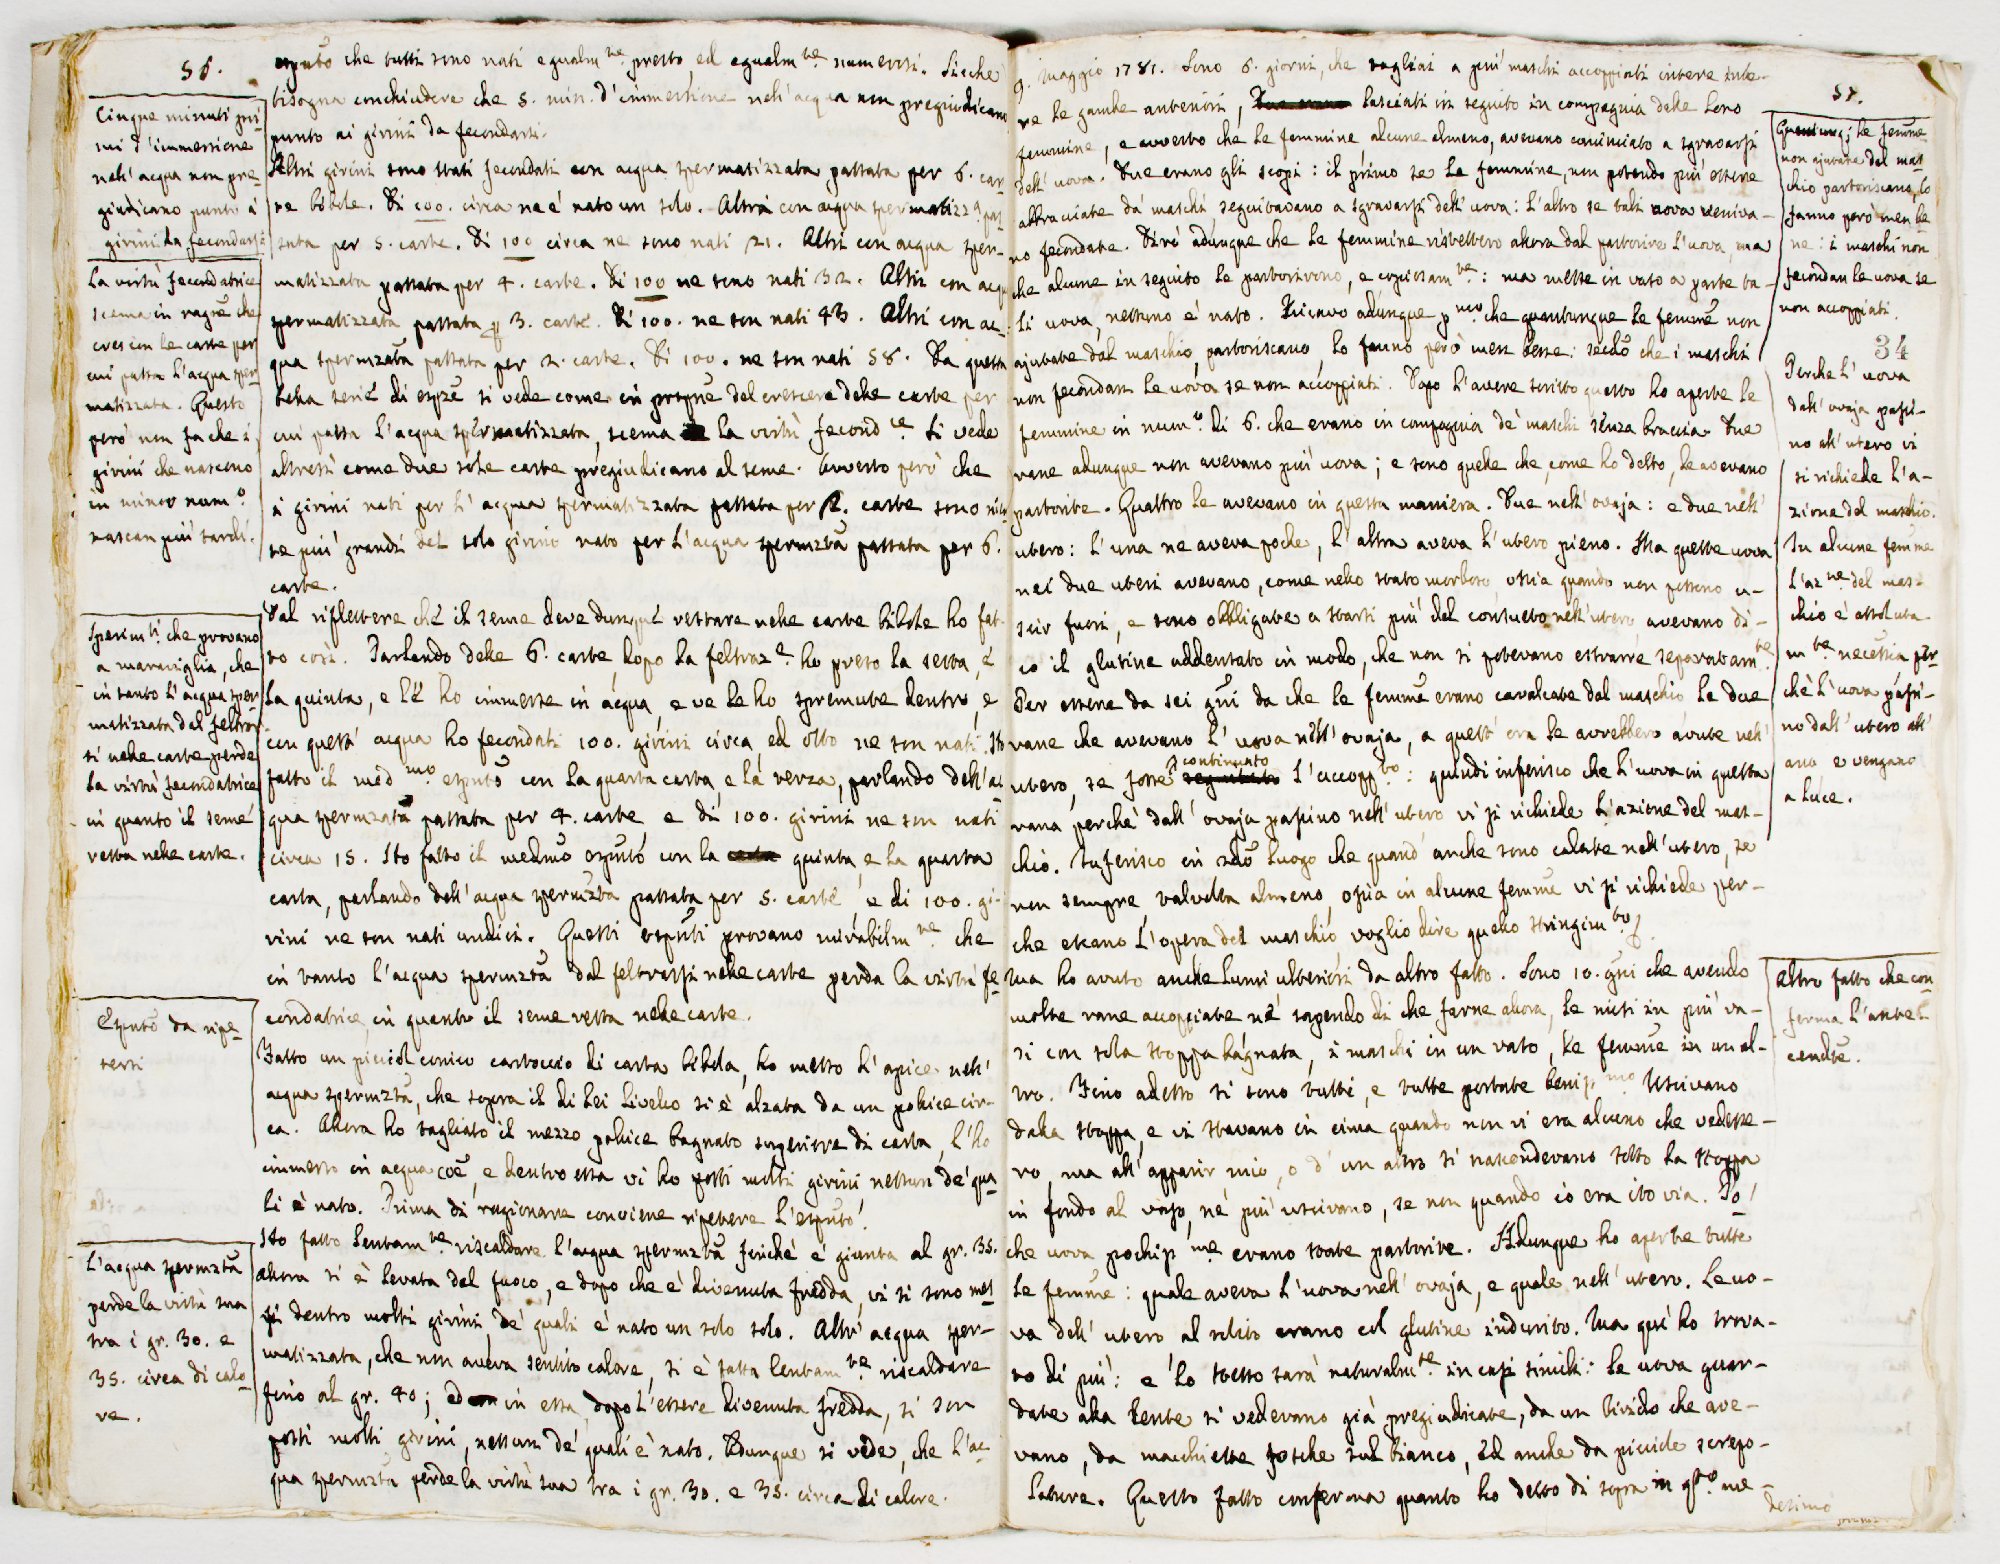 56.
Cinque minuti pri-
mi d'immersione
nell'acqua non pre-
giudicano punto a'
girini da fecondarsi
La virtù fecondatrice
scema in ragñe che
crescon le carte per
cui passa l'acqua sper-
matizzata. Questo
però non fa che i
girini che nascono
in minor num.o
nascan più tardi.
Sperim.ti che provano
a maraviglia, che
in tanto l'acqua sper
matizzata dal feltrar-
si nelle carte perde
la virtù fecondatrice
in quanto il seme
resta nelle carte.
da ripe-
tersi
L'acqua spermzta
perde la virtù sua
tra i gr. 30. e
35. circa di calo-
re.
che tutti sono nati egualm.te presto, ed egualm.te numerosi. Sicche
bisogna conchiudere che 5. min. d'immersione nell'acqua non pregiudicano
punto ai girini da fecondarsi.
Altri girini sono stati fecondati con acqua spermatizzata passata per 6. car-
te bibole. Di 100. circa ne è nato un solo. Altri con acqua spermatizz.a pas-
sata per 5. carte. Di 100 circa ne sono nati 21. Altri con acqua sper-
matizzata passata per 4. carte. Di 100 ne sono nati 32. Altri con acqua
spermatizzata passata p 3. carte. Di 100. ne son nati 43. Altri con ac-
qua spermzata passata per 2. carte. Di 100. ne son nati 58. Da questa
bella serie di espze si vede come in propne del crescere delle carte per
cui passa l'acqua spermatizzata, scema la virtù fecond.ce Si vede
altresì come due sole carte pregiudicano al seme. Avverto però che
i girini nati per l'acqua spermatizzata passata per 2. carte sono
più grandi del solo girino nato per l'acqua spermzta passata per 6.
carte.
Dal riflettere che il seme deve dunque restare nelle carte bibole ho fat-
to così. Parlando delle 6. carte, dopo la feltraz.e ho preso la sesta, e
la quinta, e le ho immerse in acqua, e ve le ho spremute dentro, e
con quest'acqua ho fecondati 100. girini circa ed otto ne son nati. Ho
fatto il med.mo espto con la quarta carta, e la terza, parlando dell'ac-
qua spermzata passata per 4. carte, e di 100. girini ne son nati
circa 15. Ho fatto il medmo espto con la quinta, e la quarta
carta, parlando dell'acqua spermzta passata per 5. carte, e di 100. gi-
rini ne son nati undici. Questi espti provano mirabilm.te che
in tanto l'acqua spermzta dal feltrarsi nelle carte perda la virtù fe-
condatrice, in quanto il seme resta nelle carte.
Fatto un picciol conico cartoccio di carta bibola, ho messo l'apice nell'
acqua spermzta, che sopra il di lei livello si è alzata da un pollice cir-
ca. Allora ho tagliato il mezzo pollice bagnato superiore di carta, l'ho
immerso in acqua coe, e dentro essa vi ho posti molti girini nessun de' qua-
li è nato. Prima di ragionare conviene ripetere l'espto.
Ho fatto lentam.te riscaldare l'acqua spermzta finchè è giunta al gr. 35.
Allora si è levata dal fuoco, e dopo che è divenuta fredda, vi si sono mes-
si dentro molti girini, de' quali è nato un solo solo. Altr'acqua sper-
matizzata, che non aveva sentito calore, si è fatta lentam.te riscaldare
fino al gr. 40; ed in essa, dopo l'essere divenuta fredda, si son
posti molti girini, nessun de' quali è nato. Adunque si vede, che l'ac-
qua spermzta perde la virtù sua tra i gr. 30. e 35. circa di calore.
57.
9. Maggio 1781. Sono 6. giorni, che tagliai a più maschi accoppiati intere inte-
re le gambe anteriori, lasciati in seguito in compagnia delle loro
femmine, e avverto che le femmine alcune almeno, avevano cominciato a sgravarsi
dell'uova. Due erano gli scopi: il primo se le femmine, non potendo più essere
abbracciate da' maschi, seguitavano a sgravarsi dell'uova: l'altro se tali uova veniva-
no fecondate. Dirò adunque che le femmine ristettero allora dal partorire l'uova, ma
che alcune in seguito le partorirono, e copiosam.te: ma messe in vaso a parte ta-
li uova, nessuno è nato. Ricavo adunque p.mo che quantunque le femme non
ajutate dal maschio, partoriscano, lo fanno però men bene: secdo che i maschi
non fecondan le uova se non accoppiati. Dopo l'avere scritto questo ho aperte le
femmine in num.o di 6. che erano in compagnia de' maschi senza braccia. Due
rane adunque non avevano più uova; e sono quelle che, come ho detto, le avevano
partorite. Quattro le avevano in questa maniera. Due nell'ovaja: e due nell'
utero: l'una ne aveva poche, l'altra aveva l'utero pieno. Ma queste uova
nei due uteri avevano, come nello stato morboso ossia quando non possono u-
scir fuori, e sono obbligate a starsi più del consueto nell'utero, avevano di-
co il glutine addentato in modo, che non si potevano estrarre separatam.te
Per essere da sei gni da che le femme erano cavalcate dal maschio le due
rane che avevano l'uova nell'ovaja, a quest'ora le avrebbero avute nell'
utero, se fosse continuato l'accopp.to: quindi inferisco che l'uova in questa
rana perchè dall'ovaja passino nell'utero vi si richiede l'azione del mas-
chio. Inferisco in 2do luogo che quand'anche sono calate nell'utero, se
non sempre, talvolta almeno, ossia in alcune femme vi si richiede per-
che escano l'opera del maschio, voglio dire quello stringim.to
Ma ho avuto anche lumi ulteriori da altro fatto. Sono 10. gni che avendo
molte rane accoppiate nè sapendo di che farne allora, le misi in più va-
si con sola stoppa bagnata, i maschi in un vaso, le femme in un al-
tro. Fino adesso si sono tutti, e tutte portate beniss.mo Uscivano
dalla stoppa, e vi stavano in cima quando non vi era alcuno che vedesse-
ro, ma all'apparir mio, o d'un altro si nascondevano sotto la stoppa
in fondo al vaso, nè più uscivano, se non quando io era ito via. Po-
che uova pochiss.me erano state partorite. Adunque ho aperte tutte
le femme: quale aveva l'uova nell'ovaja, e quale nell'utero. Le uo-
va dell'utero al solito erano col glutine indurito. Ma qui ho trova-
to di più: e lo stesso sarà naturalm.te in casi simili: le uova guar-
date alla lente si vedevano già pregiudicate, da un livido che ave-
vano, da macchiette fosche sul bianco, ed anche da picciole screpo-
lature. Questo fatto conferma quanto ho detto di sopra in qto me-
desimo
le femme
non ajutate dal mas-
chio partoriscano, lo
fanno però men be
ne: i maschi non
fecondan le uova se
non accoppiati.
34
Perche l'uova
dall'ovaja passi-
no all'utero vi
si richiede l'a-
zione del maschio.
In alcune femme
l'az.ne del mas-
chio è assoluta-
m.te necessria per-
chè l'uova passi-
no dall'utero all'
ano e vengano
a luce.
Altro fatto che con-
ferma l'antece-
cendte.